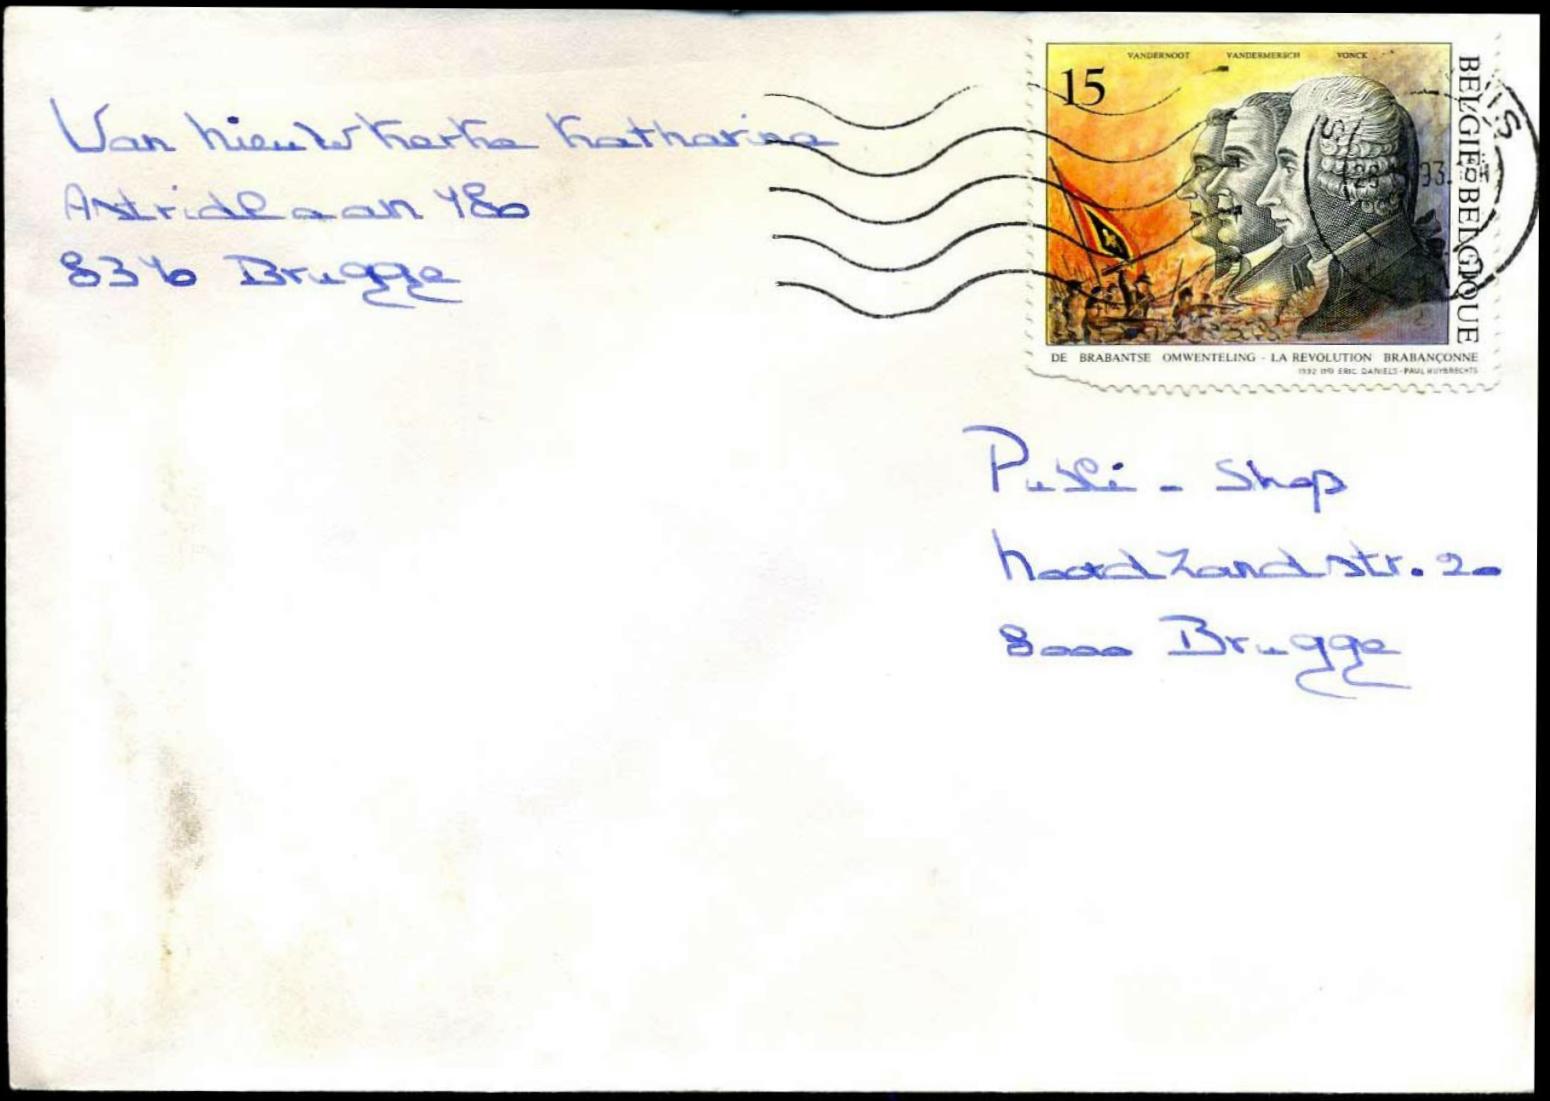 Van Nieuwkerke Katharina
Astridlaan 480
8310 Brugge
15
VANDERNOOT VANDERMERSCH VONCK
BELGIË BELGIQUE
DE BRABANTSE OMWENTELING - LA REVOLUTION BRABANÇONNE
1992 ERIC DANIELS - PAUL HUYBRECHTS
93
Publi - Shop
Noordzandstr. 20
8000 Brugge